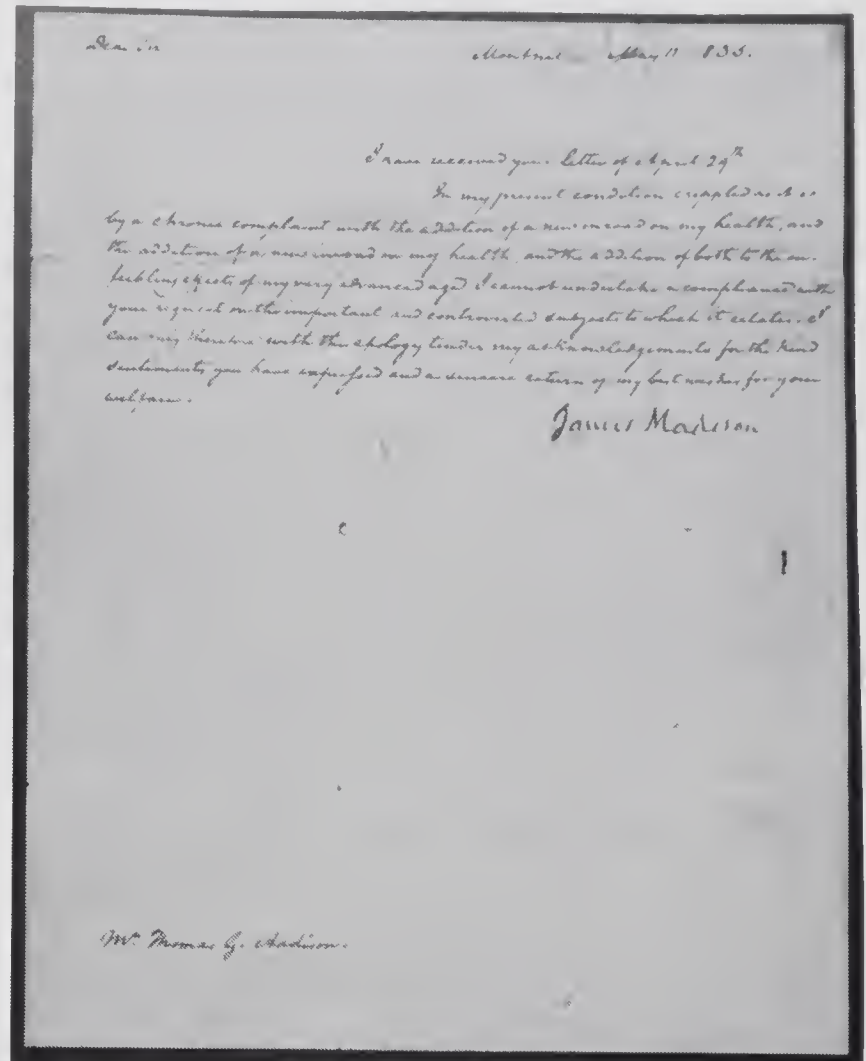 Dear Sir
Montpel May 11 1833.
I have received your letter of April 29th
In my present condition crippled as it is
by a chronic complaint with the addition of a new inroad on my health, and
the addition of a new inroad on my health, and the addition of both to the en-
feebling effects of my very advanced age I cannot undertake a compliance with
your request on the important and controverted subjects to which it relates. I
can only therefore with this apology tender my acknowledgements for the kind
sentiments you have expressed and a sincere return of my best wishes for your
welfare.
James Madison
Mr. Thomas G. Addison.